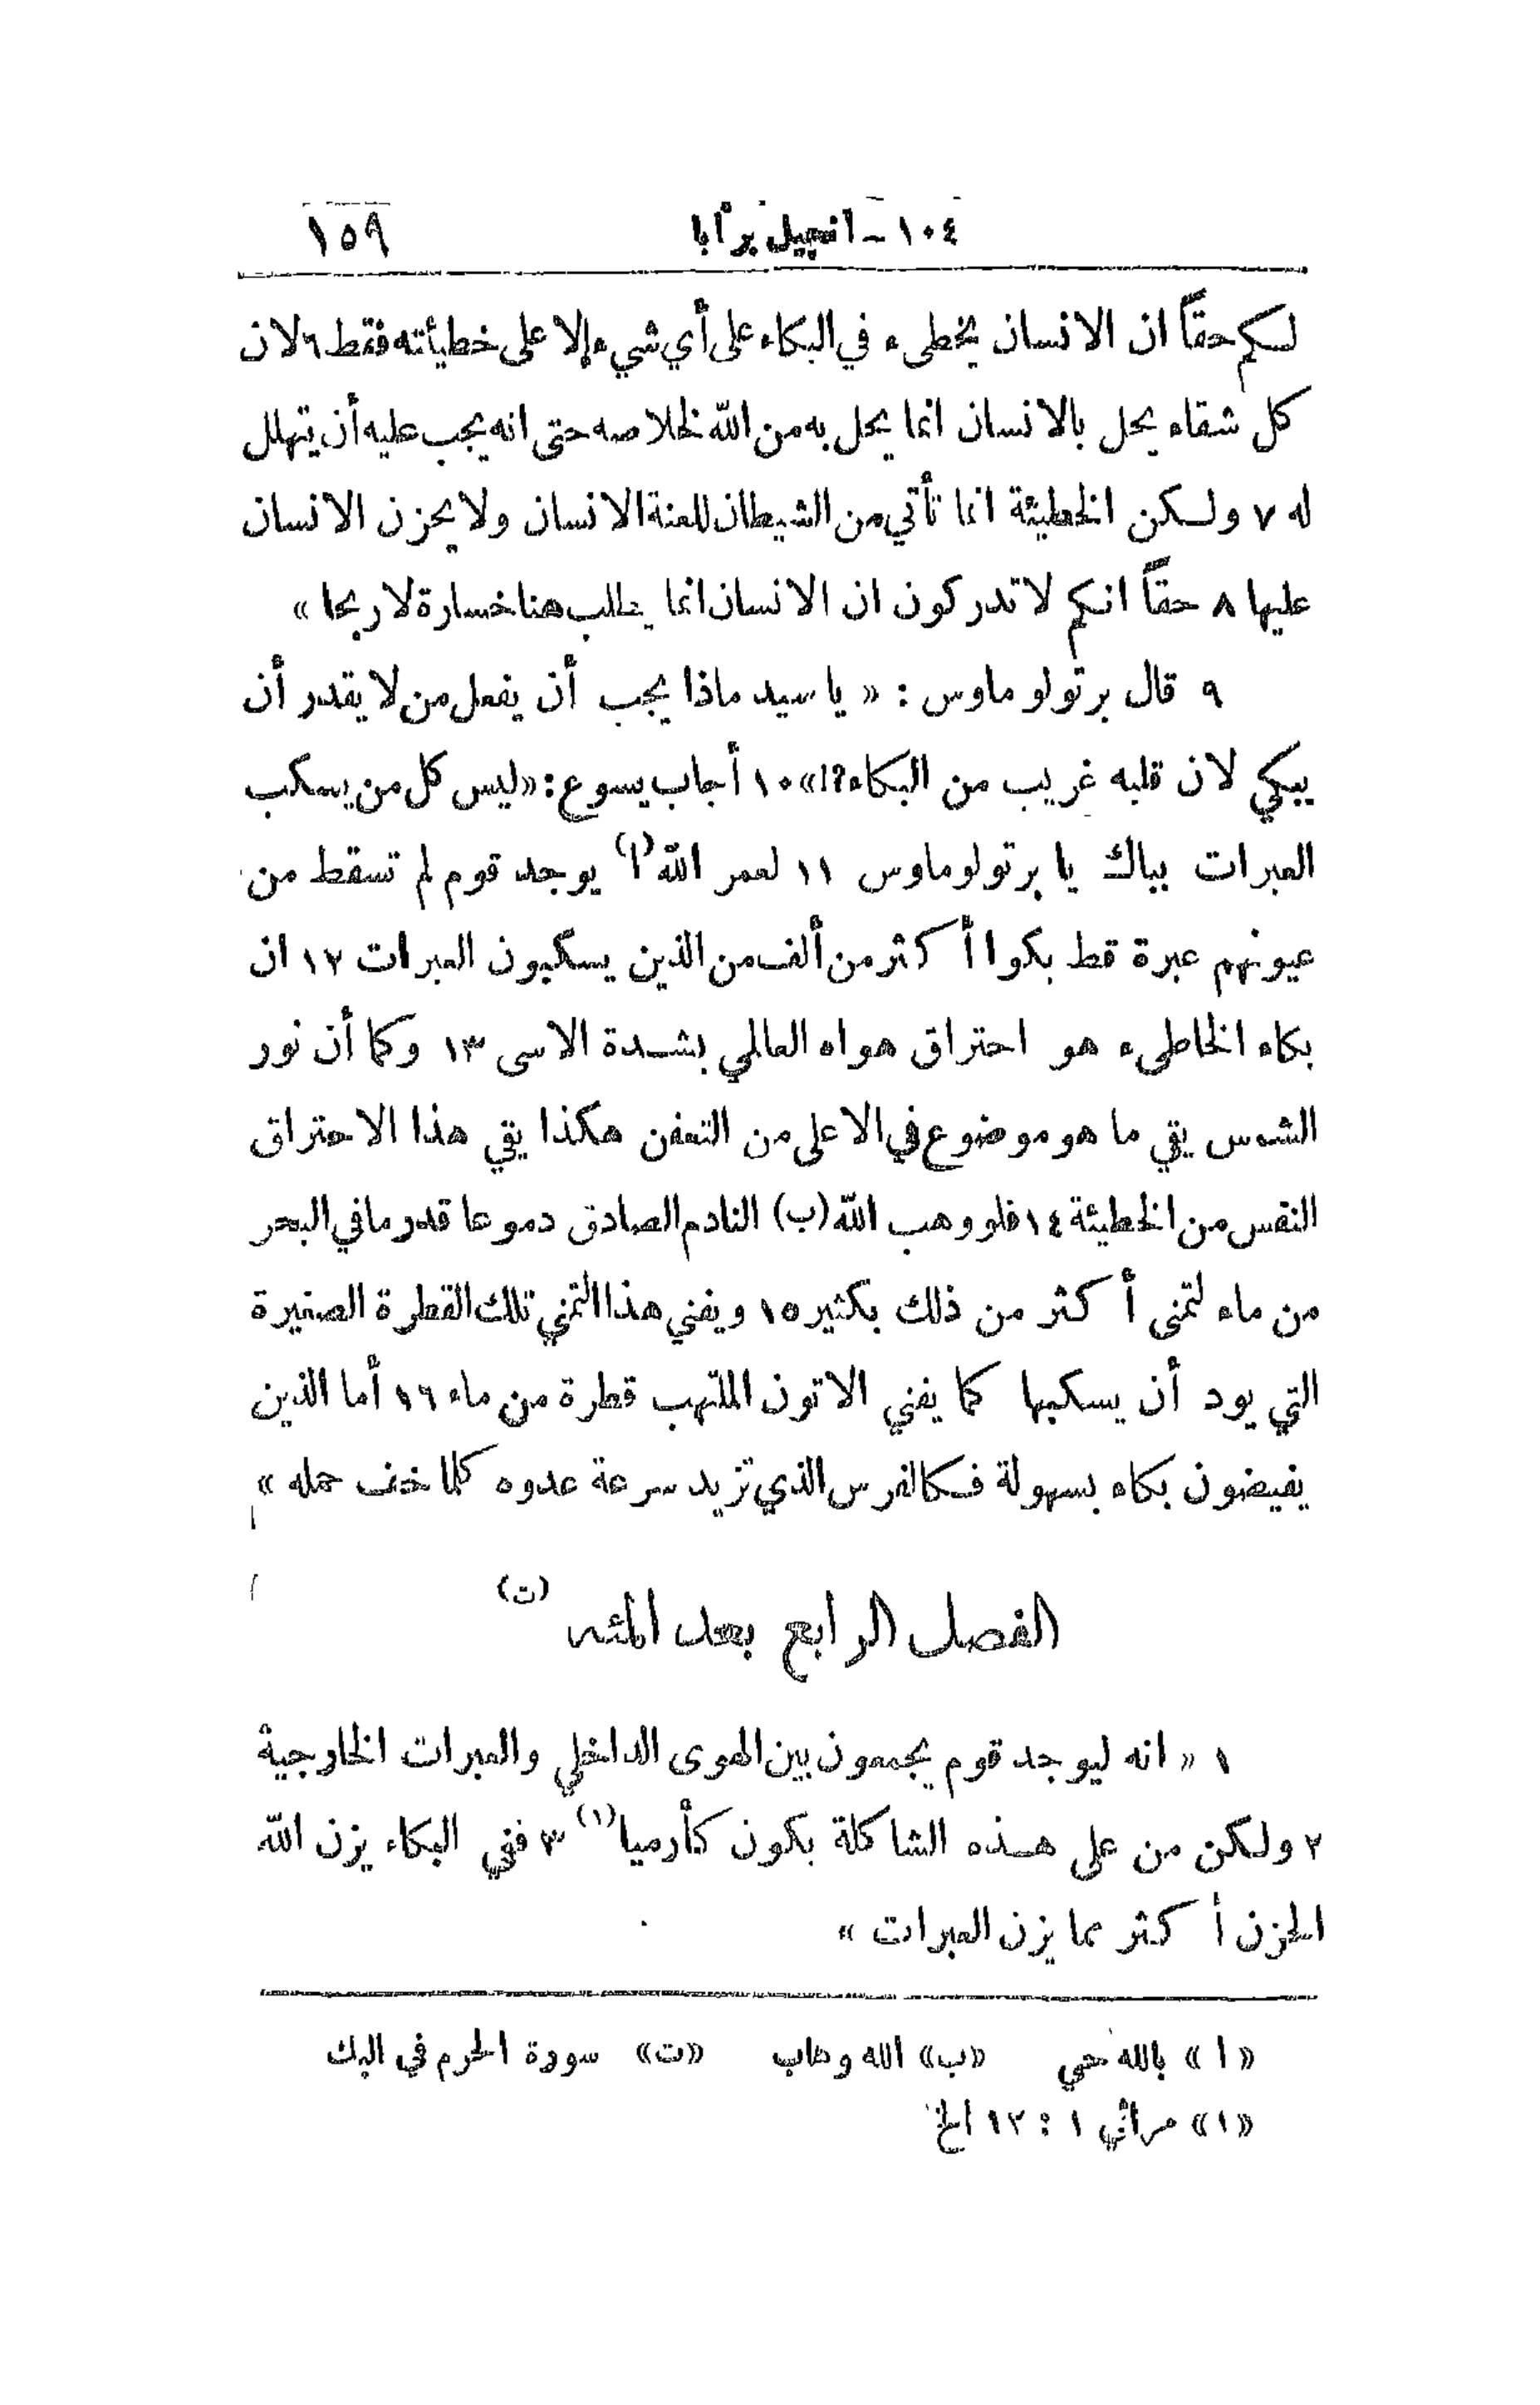 ١٠٤ - انجيل برنابا ١٥٩
لكم حقاً ان الانسان يخطىء في البكاء على أي شيء إلا على خطيئته فقط ٦ لان
كل شقاء يحل بالانسان انما يحل به من الله لخلاصه حتى انه يجب عليه أن يتهلل
له ٧ ولكن الخطيئة انما تأتي من الشيطان للعنة الانسان ولا يحزن الانسان
عليها ٨ حقاً انكم لا تدركون ان الانسان انما يطلب هنا خسارة لا ربحا »
٩ قال برتولوماوس : « يا سيد ماذا يجب أن يفعل من لا يقدر أن
يبكي لان قلبه غريب من البكاء؟!» ١٠ أجاب يسوع : «ليس كل من يسكب
العبرات بباك يا برتولوماوس ١١ لعمر الله (ا) يوجد قوم لم تسقط من
عيونهم عبرة قط بكوا أكثر من ألف من الذين يسكبون العبرات ١٢ ان
بكاء الخاطىء هو احتراق هواه العالمي بشدة الاسى ١٣ وكما أن نور
الشمس يقي ما هو موضوع في الاعلى من التعفن هكذا يقي هذا الاحتراق
النفس من الخطيئة ١٤ فلو وهب الله (ب) النادم الصادق دموعا قدر ما في البحر
من ماء لتمنى أكثر من ذلك بكثير ١٥ ويفني هذا التمني تلك القطرة الصغيرة
التي يود أن يسكبها كما يفني الاتون الملتهب قطرة من ماء ١٦ أما الذين
يفيضون بكاء بسهولة فكالفرس الذي تزيد سرعة عدوه كلما خف حمله »
الفصل الرابع بعد المئه (ت)
١ « انه ليوجد قوم يجمعون بين الهوى الداخلي والعبرات الخارجية
٢ ولكن من على هذه الشاكلة يكون كأرميا (١) ٣ ففي البكاء يزن الله
الحزن أكثر مما يزن العبرات »
« ا » بالله حي «ب» الله وهاب «ت» سورة الحرم في البك
«١» مراثي ١ : ١٢ الخ